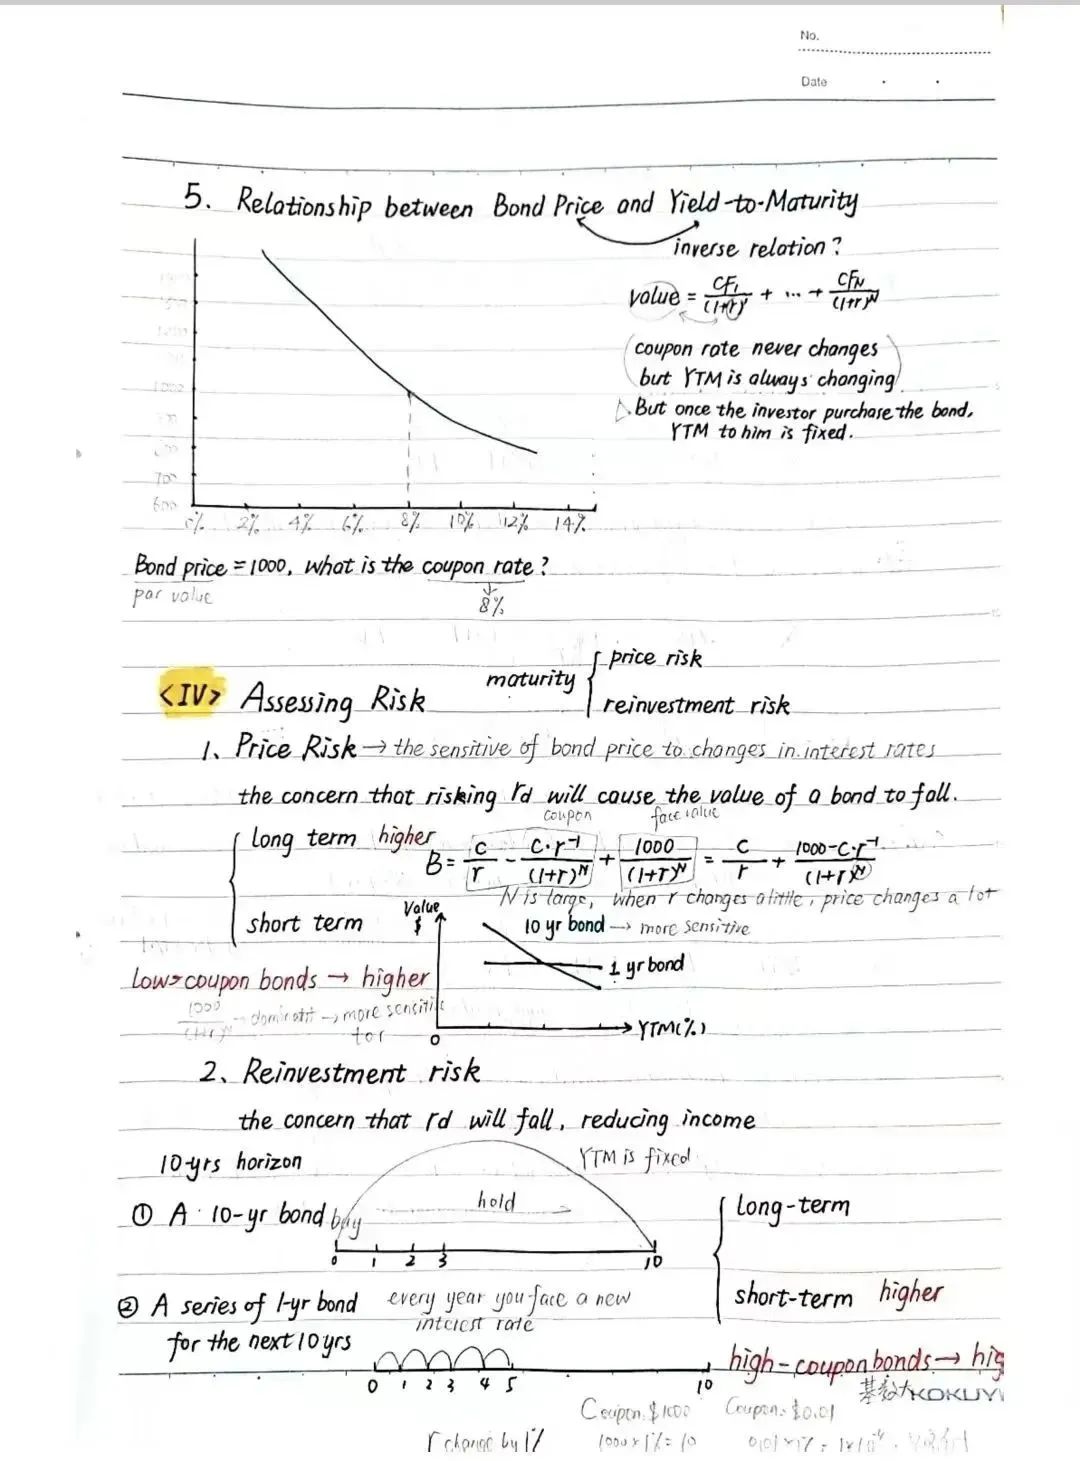 No.
Date
5. Relationship between Bond Price and Yield-to-Maturity
inverse relation?
value = CF₁/(1+r)¹ + ... + CFN/(1+r)^N
coupon rate never changes
but YTM is always changing
But once the investor purchase the bond,
YTM to him is fixed.
1000
700
600
0% 2% 4% 6% 8% 10% 12% 14%
Bond price = 1000, what is the coupon rate?
par value
8%
price risk
maturity
<IV> Assessing Risk
reinvestment risk
1、Price Risk → the sensitive of bond price to changes in interest rates
the concern that risking rd will cause the value of a bond to fall.
coupon face value
long term higher
B = C/r - C·r⁻¹/(1+r)^N + 1000/(1+r)^N = C/r + 1000-C·r⁻¹/(1+r)^N
N is large, when r changes a little, price changes a lot
short term
Value
$
10 yr bond → more sensitive
1 yr bond
Low-coupon bonds → higher
1000/(1+r)^N → more sensitive
to r
0
YTM(%)
2、Reinvestment risk
the concern that rd will fall, reducing income
10-yrs horizon
YTM is fixed
① A 10-yr bond
buy
hold
0 1 2 3 10
long-term
short-term higher
② A series of 1-yr bond
for the next 10 yrs
every year you face a new
interest rate
0 1 2 3 4 5 10
high-coupon bonds → hig
基数大
KOKUY
Coupon: $1000 Coupon: $0.01
r change by 1% 1000×1%=10 0.01×1% = 1×10⁻⁴